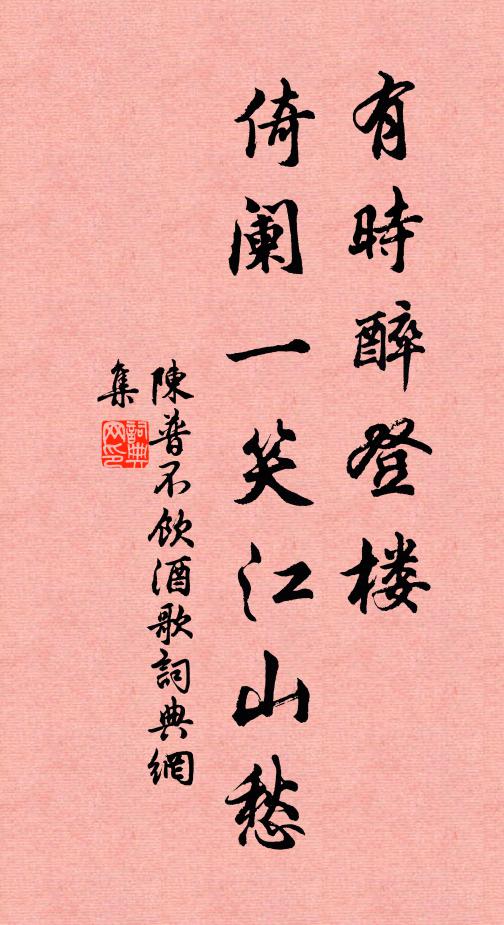 有時醉登楼
倚阑一笑江山愁
陳普不飲酒歌詞典網
集
詞典网印